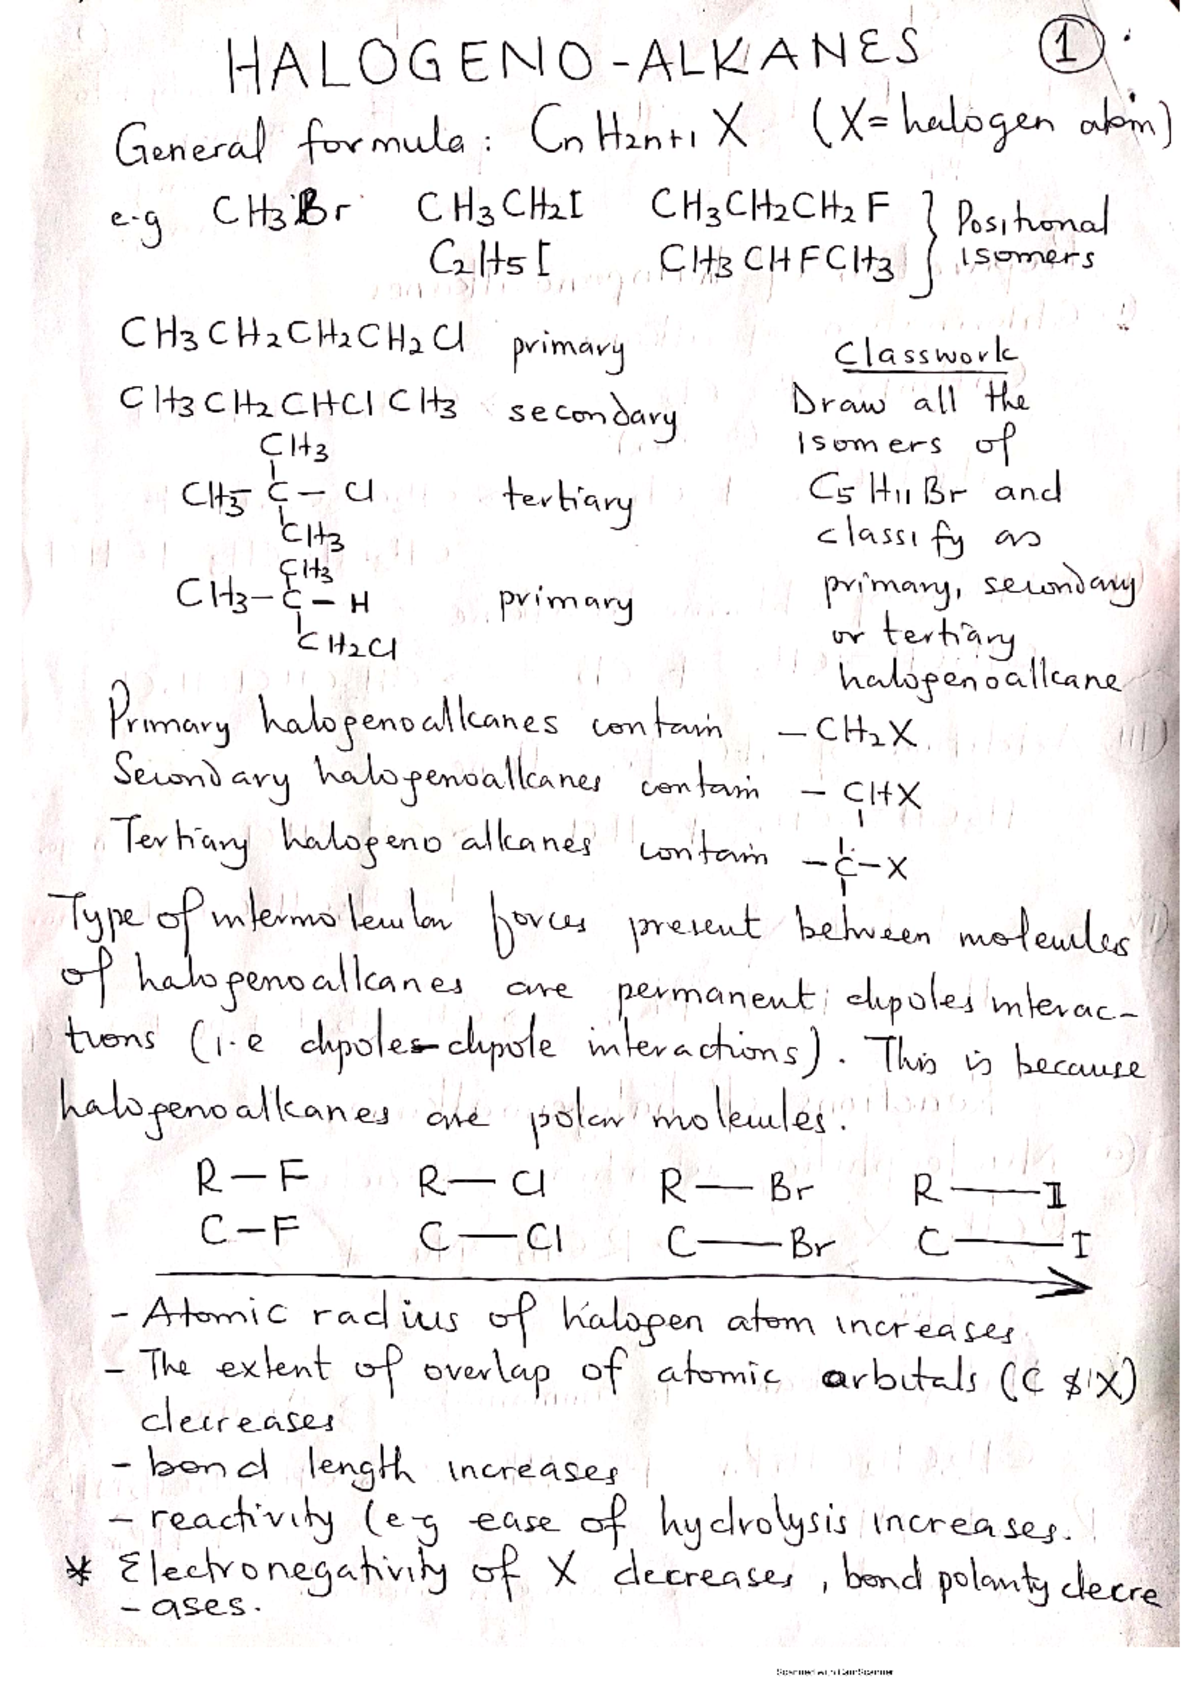 HALOGENO-ALKANES ①
General formula: CnH2n+1 X (X= halogen atom)
e.g CH3Br CH3CH2I CH3CH2CH2F } Positional
C2H5I CH3CHFCH3 isomers
CH3CH2CH2CH2Cl primary
Classwork
CH3CH2CHClCH3 secondary
Draw all the
isomers of
C5H11Br and
classify as
primary, secondary
or tertiary
halogenoalkane
CH3
CH3-C-Cl tertiary
CH3
CH3
CH3-C-H primary
CH2Cl
Primary halogenoalkanes contain -CH2X
Secondary halogenoalkanes contain -CHX
Tertiary halogeno alkanes contain -C-X
Type of intermolecular forces present between molecules
of halogenoalkanes are permanent dipoles interac-
tions (i.e dipoles-dipole interactions). This is because
halogenoalkanes are polar molecules.
R-F R-Cl R-Br R-I
C-F C-Cl C-Br C-I
- Atomic radius of halogen atom increases
- The extent of overlap of atomic orbitals (C & X)
decreases
- bond length increases
- reactivity (e.g ease of hydrolysis increases.
* Electronegativity of X decreases, bond polarity decre
-ases.
Scanned with CamScanner